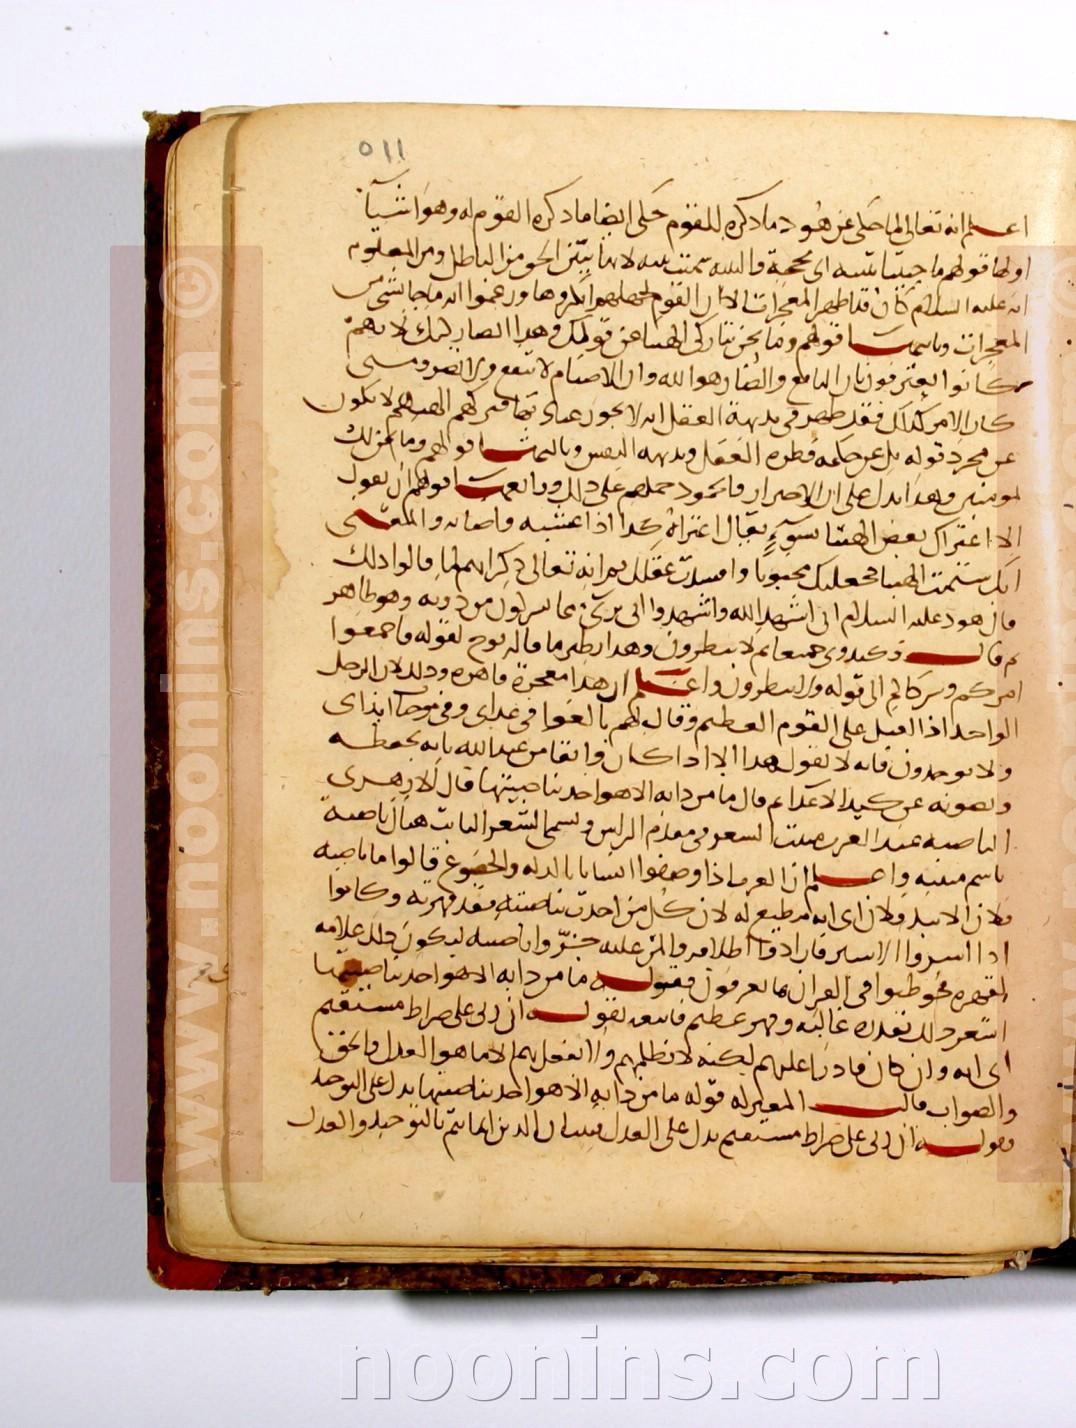 ٥١١
اعلم انه تعالى لما حكى عن هود ما ذكره للقوم حكى ايضا ما ذكره القوم له وهو اشياء
اولها قولهم ما جئتنا ببينة اى بحجة والبينة سميت بينة لانها تبين الحق من الباطل ومن المعلوم
انه عليه السلام كان قد اظهر المعجزات الا ان القوم لجهلهم انكروها وزعموا انه ما جا بشى من
المعجزات وثانيها قولهم وما نحن بتاركى الهتنا عن قولك وهذا ايضا ركيك لانهم
كانوا يعترفون بان النافع والضار هو الله وان الاصنام لا تنفع ولا تضر ومتى
كان الامر كذلك فقد ظهر فى بديهة العقل انه لا يجوز عبادتها وتركهم الهتهم لا يكون
عن مجرد قوله بل عن حكم فطرة العقل وبديهة النفس وثالثها قولهم وما نحن لك
بمومنين وهذا يدل على الاصرار والجحود ورابعها قولهم ان نقول
الا اعتراك بعض الهتنا بسوء يقال اعتراه كذا اذا غشيه واصابه والمعنى
انك شتمت الهتنا فجعلتك مجنونا وافسدت عقلك ثم انه تعالى ذكر انهم لما قالوا ذلك
قال هود عليه السلام انى اشهد الله واشهدوا انى برىء مما تشركون من دونه وهو ظاهر
ثم قال فكيدونى جميعا ثم لا تنظرون وهذا نظير ما قاله نوح لقومه فاجمعوا
امركم وشركاكم الى قوله ولا تنظرون واعلم ان هذا معجزة قاهره وذلك لان الرجل
الواحد اذا اقبل على القوم العظيم وقال لهم بالغوا فى عداوتى وفى موجبات ايذاى
ولا توجلون فانه لا يقول هذا الا اذا كان واثقا من عند الله بانه يحفظه
ويصونه عن كيد الاعداء ثم قال ما من دابة الا هو اخذ بناصيتها قال الازهرى
الناصية عند العرب منبت الشعر فى مقدم الراس ويسمى الشعر النابت هناك ناصية
باسم منبته واعلم ان العرب اذا وصفوا انسانا بالذلة والخضوع قالوا ما ناصية
فلان الا بيد فلان اى انه مطيع له لان كل من اخذت بناصيته فقد قهرته وكانوا
اذا اسروا الاسير فارادوا اطلاقه والمن عليه جزوا ناصيته ليكون ذلك علامة
لقهره فخوطبوا فى القران بما يعرفون فقوله ما من دابة الا هو اخذ بناصيتها
اشعر ذلك بقدرة غالبة وقهر عظيم فاتبعه بقوله ان ربى على صراط مستقيم
اى انه وان كان قادرا عليهم لكنه لا يظلمهم ولا يفعل بهم الا ما هو العدل والحق
والصواب قالت المعتزله قوله ما من دابة الا هو اخذ بناصيتها يدل على التوحيد
وقوله ان ربى على صراط مستقيم يدل على العدل فثبت ان الدين انما يتم بالتوحيد والعدل
© www.noonins.com
noonins.com